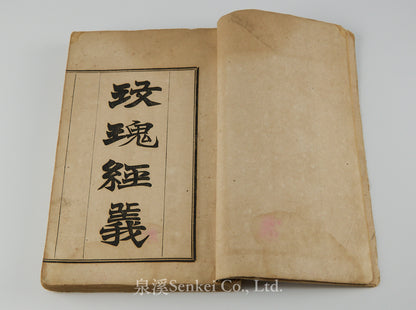 玫瑰經義
泉溪Senkei Co., Ltd.